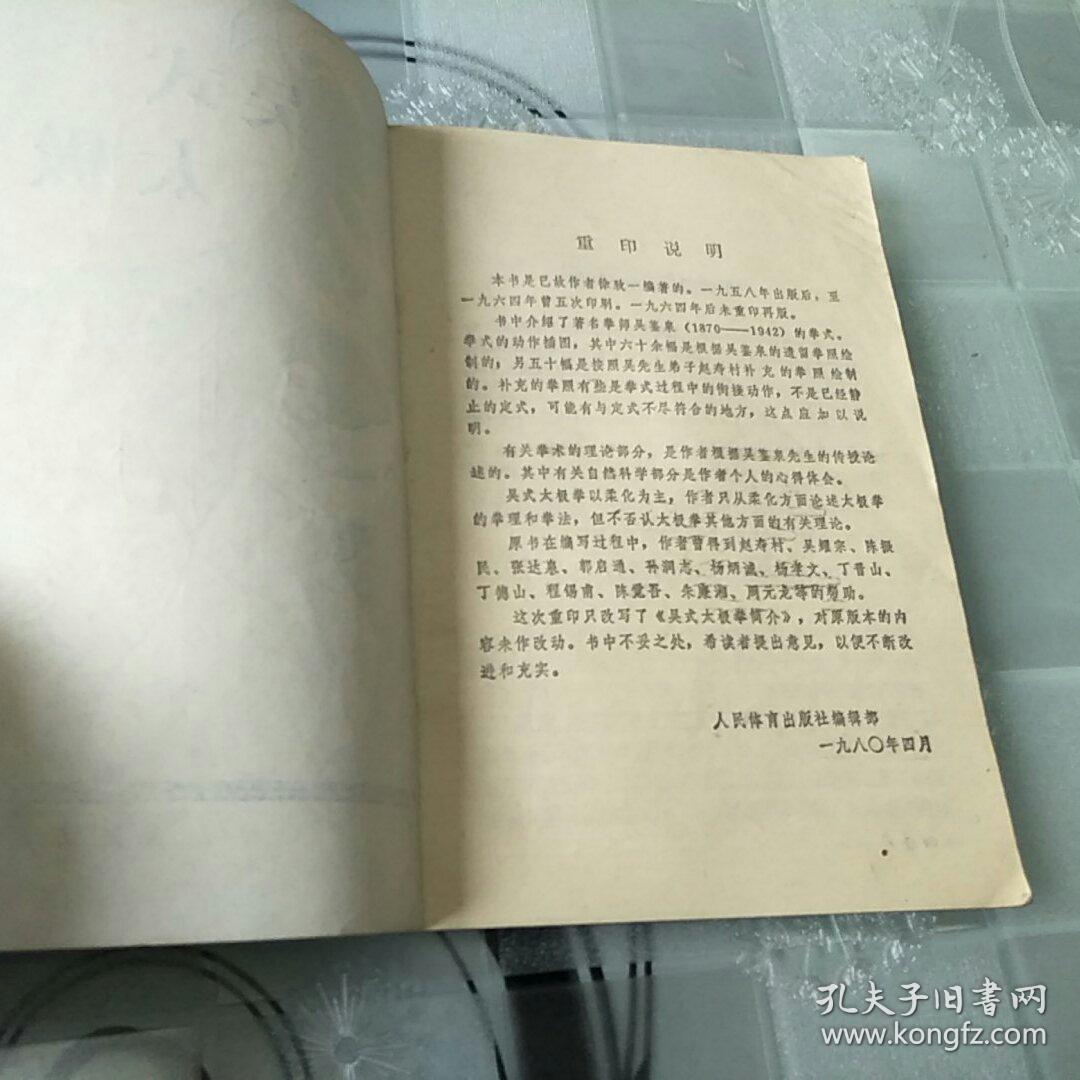 重印说明
本书是已故作者徐致一编著的。一九五八年出版后，至
一九六四年曾五次印刷。一九六四年后未重印再版。
书中介绍了著名拳师吴鉴泉（1870——1942）的拳式。
拳式的动作插图，其中六十余幅是根据吴鉴泉的遗留拳照绘
制的；另五十幅是按照吴先生弟子赵寿村补充的拳照绘制
的。补充的拳照有些是拳式过程中的衔接动作，不是已经静
止的定式，可能有与定式不尽符合的地方，这点应加以说
明。
有关拳术的理论部分，是作者根据吴鉴泉先生的传授论
述的。其中有关自然科学部分是作者个人的心得体会。
吴式太极拳以柔化为主，作者只从柔化方面论述太极拳
的拳理和拳法，但不否认太极拳其他方面的有关理论。
原书在编写过程中，作者曾得到赵寿村、吴耀宗、陈振
民、张达泉、郭启通、孙润志、杨炳诚、杨孝文、丁晋山、
丁德山、程锡甫、陈觉吾、朱廉湘、周元龙等的帮助。
这次重印只改写了《吴式太极拳简介》，对原版本的内
容未作改动。书中不妥之处，希读者提出意见，以便不断改
进和充实。
人民体育出版社编辑部
一九八〇年四月
孔夫子旧书网
www.kongfz.com